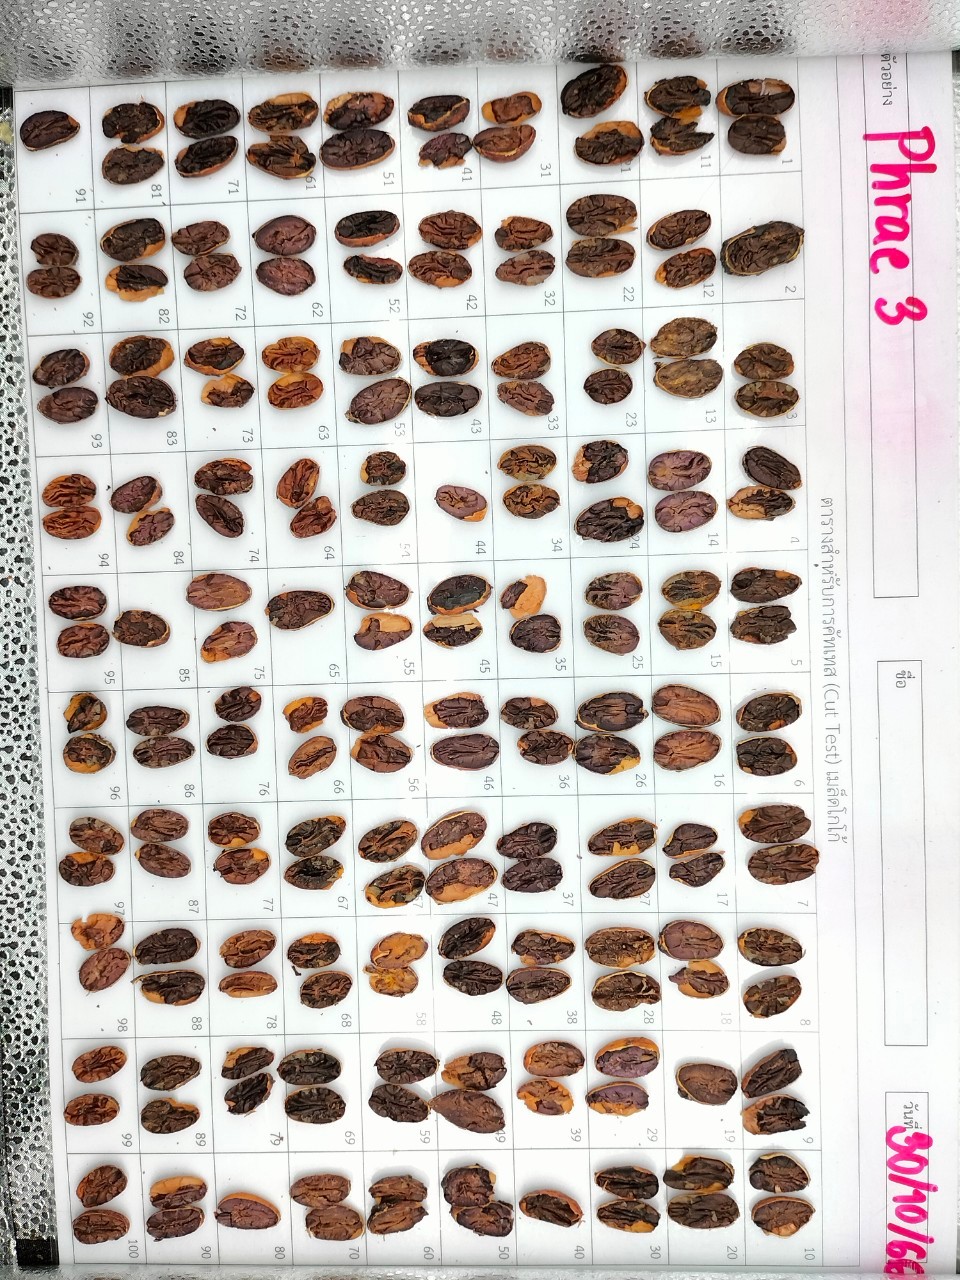 ตัวอย่าง Phrae 3 ชื่อ วันที่ 30/10/66
ตารางสำหรับการคัทเทส (Cut Test) เมล็ดโกโก้
1 2 3 4 5 6 7 8 9 10
11 12 13 14 15 16 17 18 19 20
22 23 24 25 26 27 28 29 30
31 32 33 34 35 36 37 38 39 40
41 42 43 44 45 46 47 48 49 50
51 52 53 54 55 56 57 58 59 60
61 62 63 64 65 66 67 68 69 70
71 72 73 74 75 76 77 78 79 80
81 82 83 84 85 86 87 88 89 90
91 92 93 94 95 96 97 98 99 100